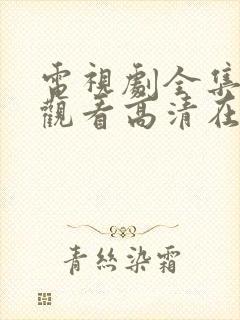 電視劇全集
觀看高清在
青絲染霜